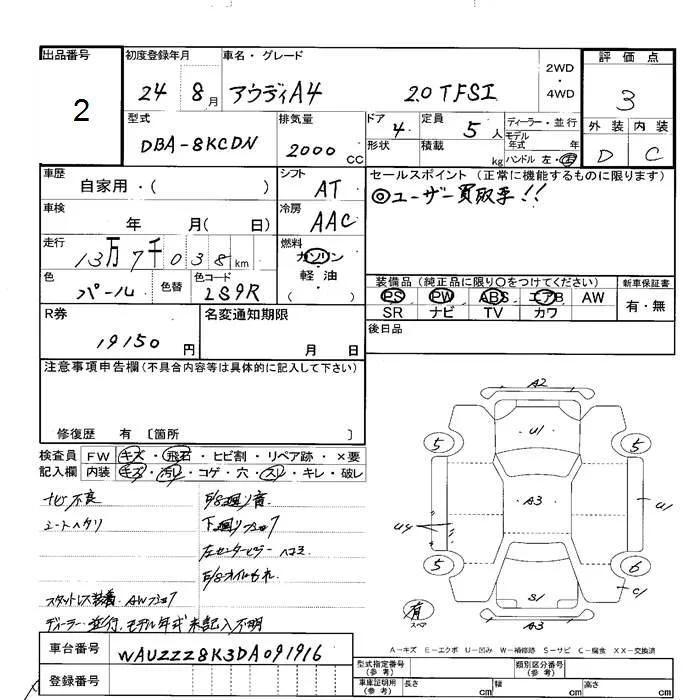 出品番号
2
初度登録年月
24 8月
車名・グレード
アウディA4 2.0 TFSI
2WD
・
4WD
評価点
3
外装 内装
D C
型式
DBA-8KCDN
排気量
2000 CC
ドア 4
形状
定員 5人
積載 kg
ディーラー・並行
モデル年式 年
ハンドル 左・右
車歴
自家用・( )
シフト
AT
車検
年 月( 日)
冷房
AAC
走行
13万7千038km
燃料
ガソリン
・
軽油
( )
色
パール
色替
色コード
2S9R
セールスポイント (正常に機能するものに限ります)
◎ユーザー買取車!!
装備品(純正品に限り○をつけてください)
PS PW ABS エアB AW
SR ナビ TV カワ
新車保証書
有・無
後日品
R券
19150円
名変通知期限
月 日
注意事項申告欄(不具合内容等は具体的に記入して下さい)
修復歴 有 〔箇所 〕
検査員記入欄
FW キズ・飛石・ヒビ割・リペア跡・×要
内装 キズ・汚れ・コゲ・穴・スレ・キレ・破レ
ナビ不良
シートヘタリ
E/G廻り音
下廻り
左センターピラー ヘコミ
E/Gオイルもれ
スタットレス装着
ディーラー並行、モデル年式未記入不明
車台番号
WAUZZZ8K3DA091916
登録番号
A2
U1
5
5
A3
U4
U1
5
6
S1
C1
A3
有
スペア
A-キズ E-エクボ U-凹み W-補修跡 S-サビ C-腐食 XX-交換済
型式指定番号(参考)
類別区分番号(参考)
車庫証明用(参考)
長さ cm
幅 cm
高さ cm